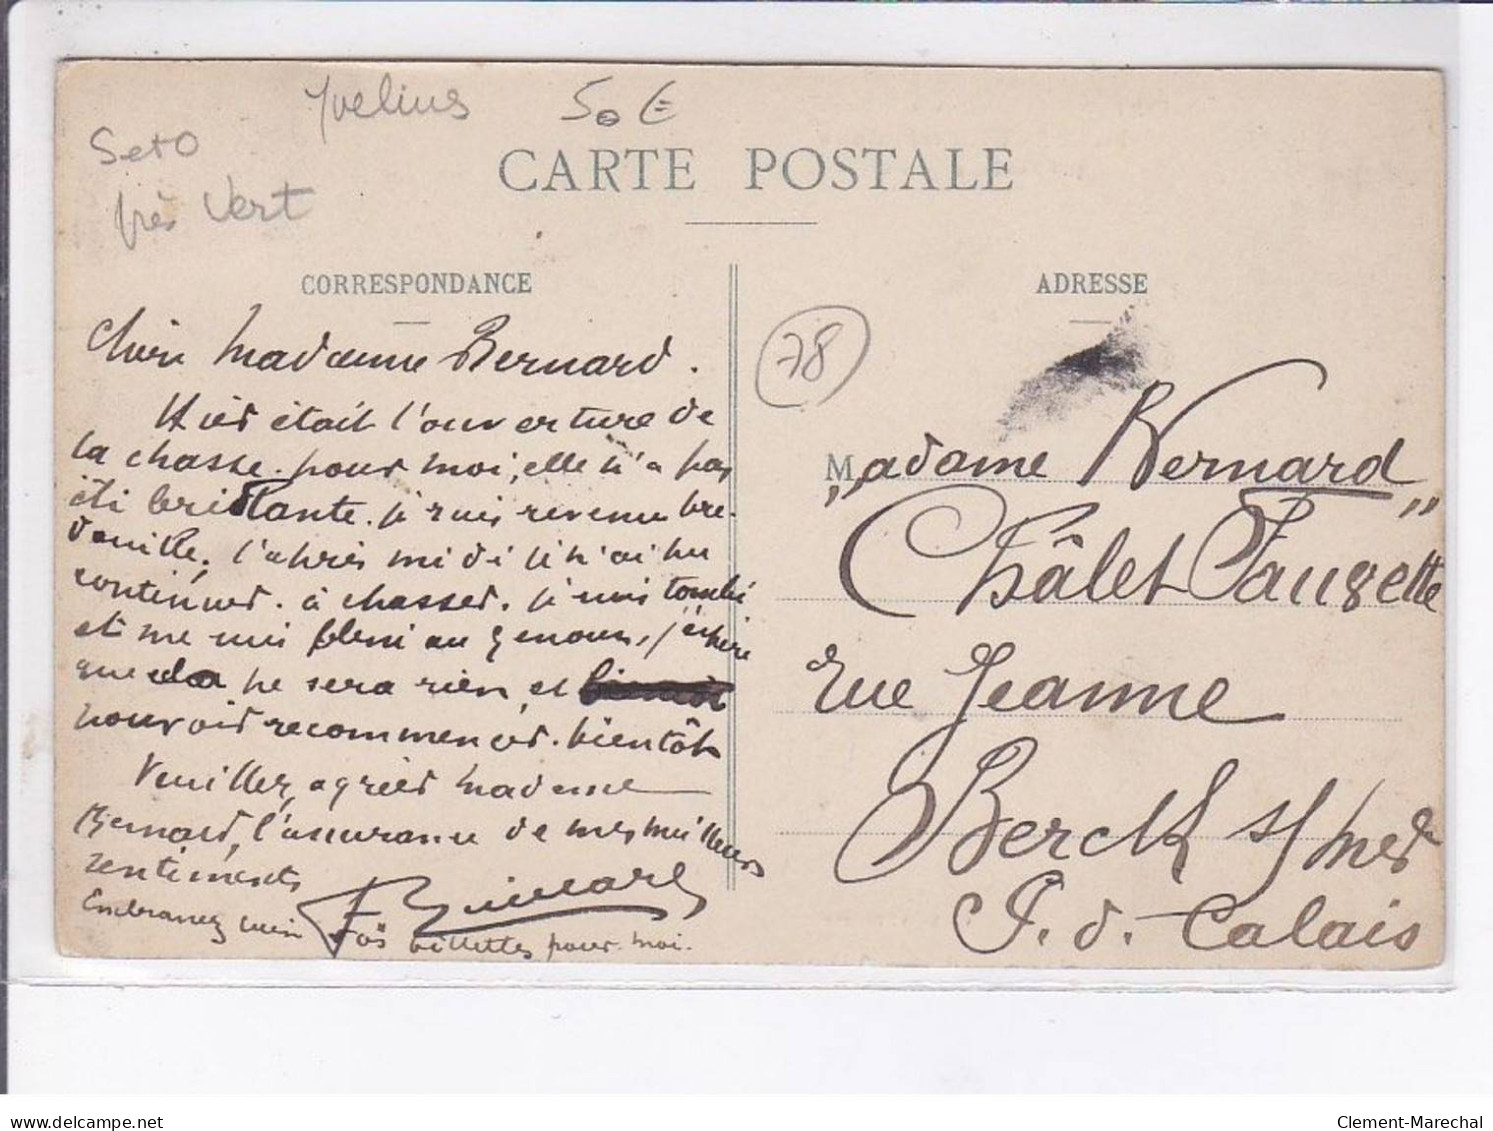 Yvelines 50 €
Seto
près Vert
CARTE POSTALE
CORRESPONDANCE
ADRESSE
78
Chère Madame Bernard.
Hier était l'ouverture de
la chasse. pour moi, elle n'a pas
été brillante. je suis revenu bre-
douille, l'après midi je n'ai pu
continuer. à chasser. je suis tombé
et me suis au genoux, j'espère
que cela ne sera rien, et
pouvoir recommencer. bientôt
Veuillez, agréer madame
Bernard, l'assurance de mes meilleurs
sentiments
Embrassez bien vos fillettes pour moi.
"Madame Bernard"
Châlet Faugette
Rue Jeanne
Berck s/mer
P. d. Calais
www.delcampe.net
Clement-Marechal